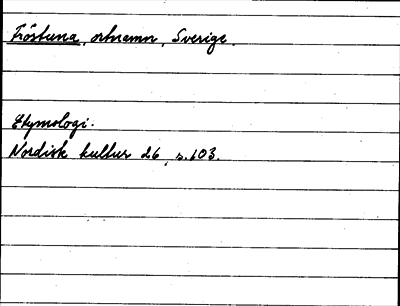 Fröstuna, ortnamn, Sverige.
Etymologi.
Nordisk kultur 26, s. 103.